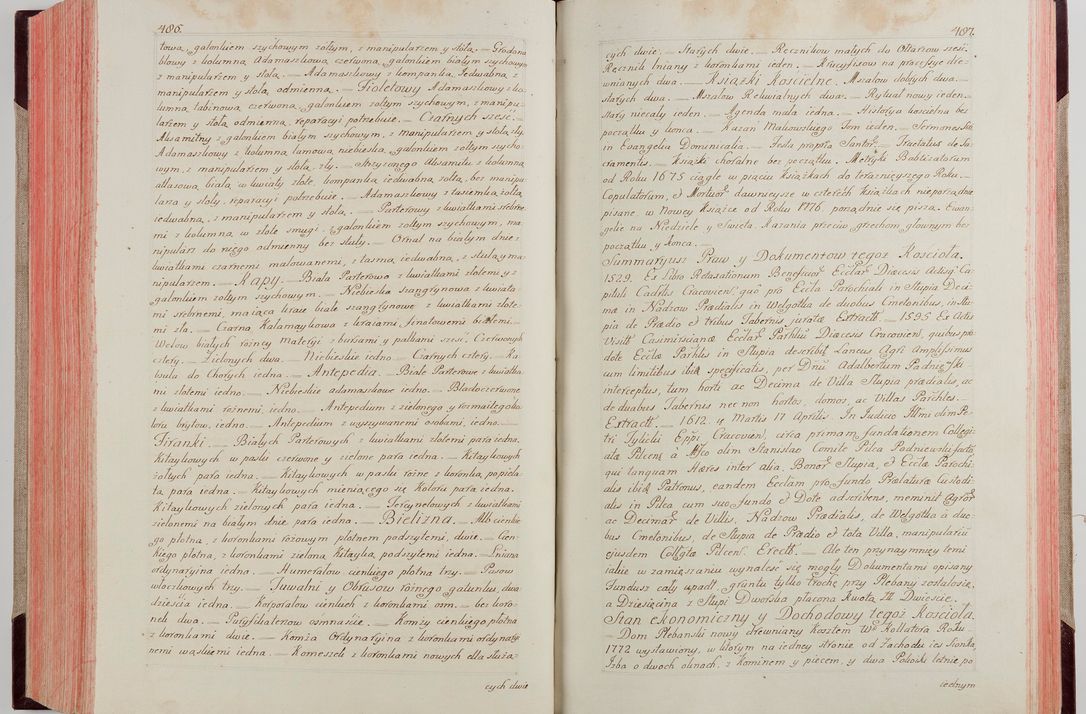 486.
towa, galonkiem szychowym zołtym, z manipularzem y stołą. — Grodana
blowy z kolumną Adamaszkową czerwoną, galonkiem białym szychowym
z manipularzem y stołą. — Adamaszkowy z kompanką Jedwabną, z
manipularzem y stołą, odmienną. — Fioletowy Adamaszkowy z ko-
lumną, tabinową, czerwoną, galonkiem zołtym szychowym, z manipu-
larzem y stołą odmienną, reparacyi potrzebuie. — Czarnych sześć. —
Aksamitny z galonkiem białym szychowym, z manipularzem y stołą, zły.
Adamaszkowy z kolumną lamową niebieską, galonkiem zołtym szycho-
wym, z manipularzem y stołą, zły. — Strzyzonego Aksamitu z kolumną
atłasową, białą, w kwiaty złote, kompanką iedwabną, zołtą, bez manipu-
larza y stoły, reparacyi potrzebuie. — Adamaszkowy z tasiemką zołtą
iedwabną, z manipularzem y stołą. — Parterowy z kwiatkami srebrne-
mi z kolumną, w złote smugi, galonkiem zołtym szychowym, ma-
nipularz do niego odmienny bez stuły. — Ornat na białym dnie z
kwiatkami czarnemi malowanemi, z tasmą iedwabną, z stułą y ma-
nipularzem. — Kapy. — Biała Parterowa z kwiatkami złotemi, y z
galonkiem zołtym szychowym. — Niebieska szanglynowa z kwiata-
mi srebrnemi, maiąca kraie białe szanglynowe z kwiatkami złote-
mi zła. — Czarna Kalamaykowa z kraiami, finotowemi białemi. —
Welow białych rozney materyi z bursami, y palkami sześć, Czerwonych
cztery. — Zielonych dwa. — Niebieskie iedno. — Czarnych cztery. — Ka-
bsula do Chorych iedna. — Antepedia. — Białe Parterowe z kwiatka-
mi złotemi iedno. — Niebieskie adamaszkowe iedno. — Blado czerwone
z kwiatkami roznemi, iedno. — Antepedium z zielonego y rozmaitego ko-
loru brytow, iedno. — Antepedium z wyszywanemi osobami, iedno. —
Firanki. — Białych Parterowych z kwiatkami złotemi para iedna.
Kitaykowych w pasku czerwone y zielone para iedna. — Kitaykowych
zołtych para iedna. — Kitaykowych w paski rozne z koronką, popiela-
ta para iedna. — Kitaykowych mieniącego się Koloru para iedna.
Kitaykowych zielonych para iedna. — Tercynelowych z kwiatkami
zielonemi na białym dnie para iedna. — Bielizna. — Alb cienkie-
go płotna, z koronkami rozowym płotnem podszytemi, dwie. — Cien-
kiego płotna, z koronkami zieloną Kitayką, podszytemi iedna. — Lniana
ordynaryina iedna. — Humerałow cienkiego płotna trzy. — Pasow
włoczkowych trzy. — Tuwalni y Obrusow roznego gatunku, dwa-
dziescia iedna. — Korporałow cienkich z koronkami osm. — bez koro-
nek dwa. — Puryfikaterzow osmnascie. — Komzy cienkiego płotna
z koronkami dwie. — Komza Ordynaryina z koronkami ordynaryi-
nemi wąskiemi iedna. — Komeszek z koronkami nowych dla służą-
cych dwie
487.
cych dwie. — Starych dwie. — Ręcznikow małych do Ołtarzow sześć.
Ręcznik lniany z koronkami ieden. — Krucyfixow na processye dre-
wnianych dwa. — Ksiązki Koscielne. — Mszałow dobrych dwa. —
starych dwa. — Mszałow Rekwialnych dwa. — Rytuał nowy ieden. —
stary niecały ieden. — Agenda mała iedna. — Historya koscielna bez
początku y konca. — Kazan Makowskiego Tom ieden. — Sermones
in Evangelia Dominicalia. — Festa propria Sanctor. — Tractatus de Sa-
cramentis. — Ksiązki choralne bez początku. — Metryki Babtizatorum
od Roku 1675 ciągle w pięciu Książkach do teraznieyszego Roku. —
Copulatorum, & Mortuor dawnieysze w czterech Ksiązkach nieporządnie
pisane, w Nowey Książce od Roku 1776. porządnie się piszą. Ewan-
gelie na Niedziele y Swięta. Kazania przeciw grzechom głownym bez
początku y Konca. —
Summaryusz Praw y Dokumentow tegoz Koscioła.
1529. Ex Libro Retaxationum Beneficior Ecclar Diœcesis Actisq Ca-
pituli Cadlis Cracovien, quo pro Eccla Parochiali in Słupia Deci-
ma in Nadzow Prædialis in Welgotka de duobus Cmetonibus, in Słu-
pia de Prædio & tribus Tabernis, juratæ Extractt. — 1595. Ex Actis
Visittt Casimirscianæ Ecclar Parhliu Diæcesis Cracovien, quibus pro
dote Ecclæ Parhlis in Słupia describit Laneus Agri Amplissimus
cum limitibus ibik specificatis, per Dnu Adalbertum Padniewski
interceptus, tum horti ac Decima de Villa Słupia prædialis, ac
de duabus Tabernis nec non hortos, domos, ac Villas Parchles. —
Extractt. — 1612. 4 Martis 17 Aprilis. In Judicio Illmi olim Pe-
tri Tylicki Eppi Cracovien, circa primam fundationem Collegi-
atæ Pilcen a Mfco olim Stanislao Comite Pilca Padniewski factą,
qui tanquam Hæres inter alia Bonor Słupia, & Eccla Parochi-
alis ibik Patronus, eandem Ecclam pro fundo Prælaturæ Custodi-
alis in Pilca cum suo fundo & Dote adscribens, meminit Agror
ac Decimar de Villis, Nadzow Prædialis, de Welgotka a duo-
bus Cmetonibus, de Słupia de Prædio & tota Villa, manipulariu
ejusdem Collgta Pilcen. Erectt. — Ale ten przynaymniey temi
iakie w zamięszaniu wynalesć się mogły Dokumentami opisany
Fundusz cały upadł, gruntu tylko trochę przy Plebany zostałosię,
a Dziesięcina z Słupi Dworska płacona Kwotą Zł Dwiescie. —
Stan ekonomiczny y Dochodowy tegoz Koscioła.
— Dom Plebanski nowy drewniany Kosztem W Kollatora Roku
1772 wystawiony, w ktorym na iedney stronie od Zachodu iest sionka,
Izba o dwoch oknach, z Kominem y piecem, y dwa Pokoiki letnie, po
iednym